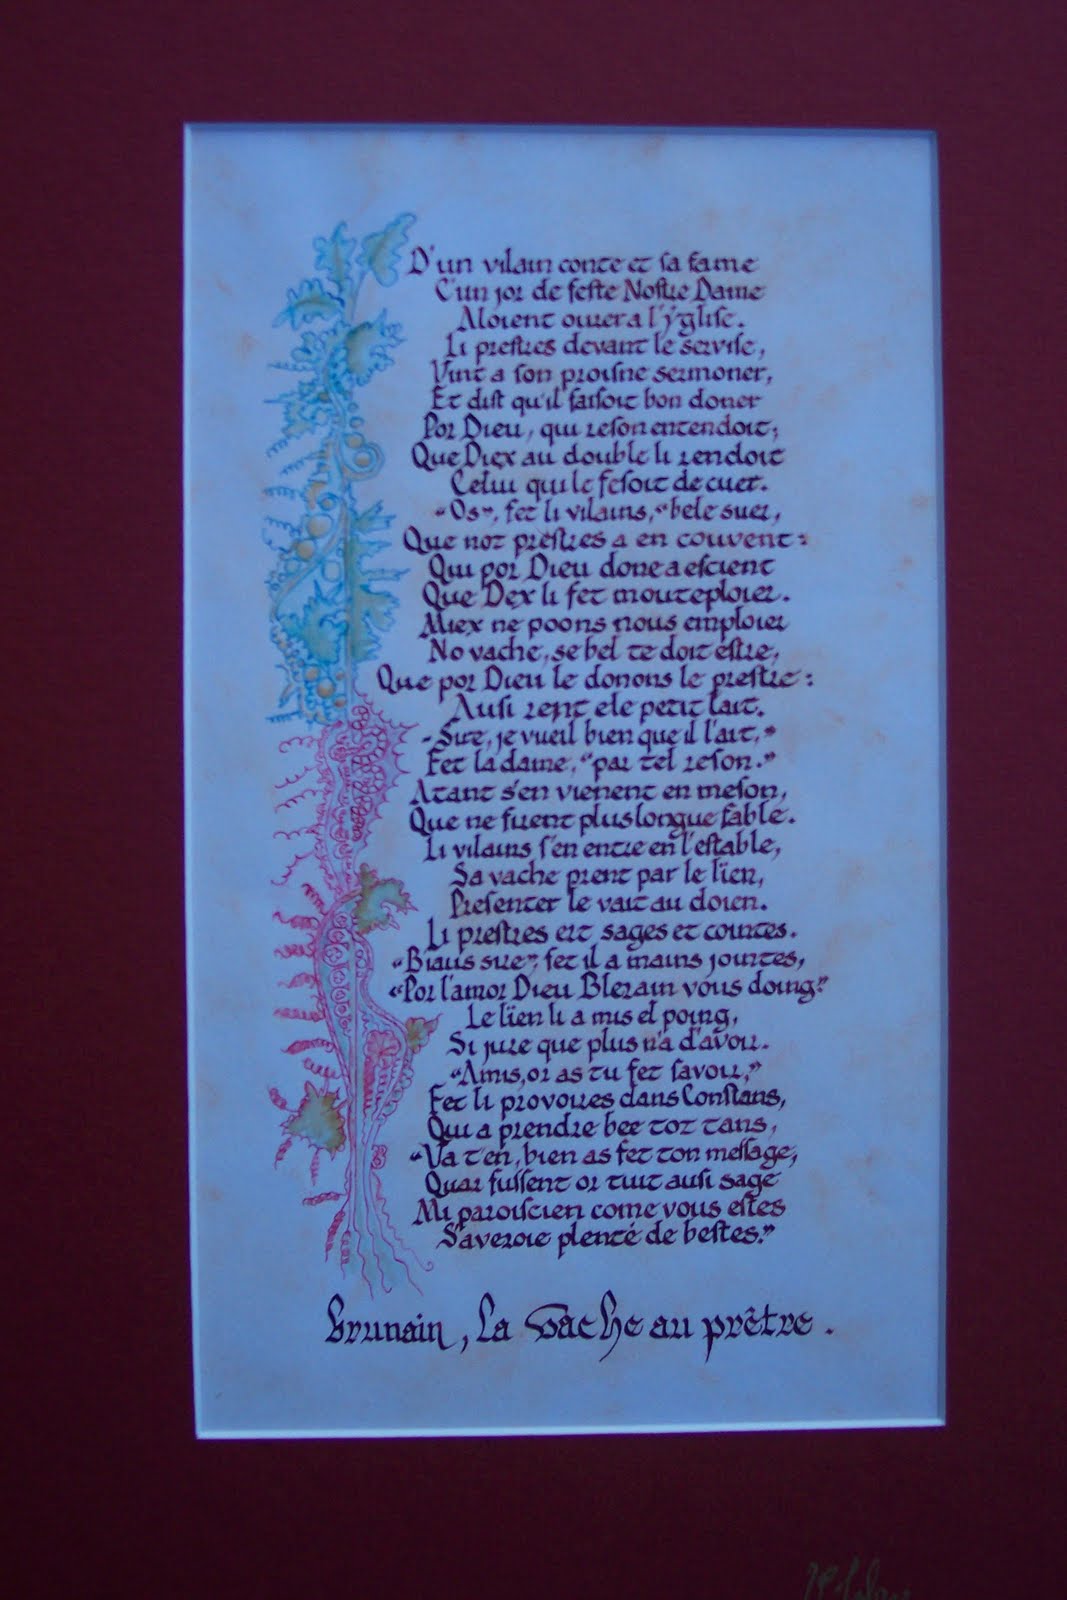 D'un vilain conte et sa fame
C'un jor de feste Nostre Dame
Aloient ourer a l'yglise.
Li prestres devant le servise,
Vint a son proisne sermoner,
Et dist qu'il faisoit bon doner
Por Dieu, qui reson entendoit;
Que Diex au double li rendoit
Celui qui le fesoit de cuer.
«Os», fet li vilains, "bele suer,
Que noz prestres a en couvent:
Qui por Dieu done a escient
Que Dex li fet mouteploier.
Miex ne poons nous emploier
No vache, se bel te doit estre,
Que por Dieu le donons le prestre:
Ausi rent ele petit lait.
-Sire, je vueil bien que il l'ait,"
Fet la dame, "par tel reson."
Atant s'en vienent en meson,
Que ne fuent plus longue fable.
Li vilains s'en entre en l'estable,
Sa vache prent par le lïen,
Presenter le vait au doien.
Li prestres ert sages et cointes.
«Biaus sire», fet il a mains jointes,
«Por l'amor Dieu Blerain vous doing."
Le lïen li a mis el poing,
Si jure que plus n'a d'avoir.
"Amis, or as tu fet savoir,"
Fet li provoires dans Constans,
Qui a prendre bee toz tans,
"Va t'en, bien as fet ton message,
Quar fussent or tuit ausi sage
Mi paroiscien come vous estes
S'averoie plenté de bestes."
brunain, la vache au prêtre.